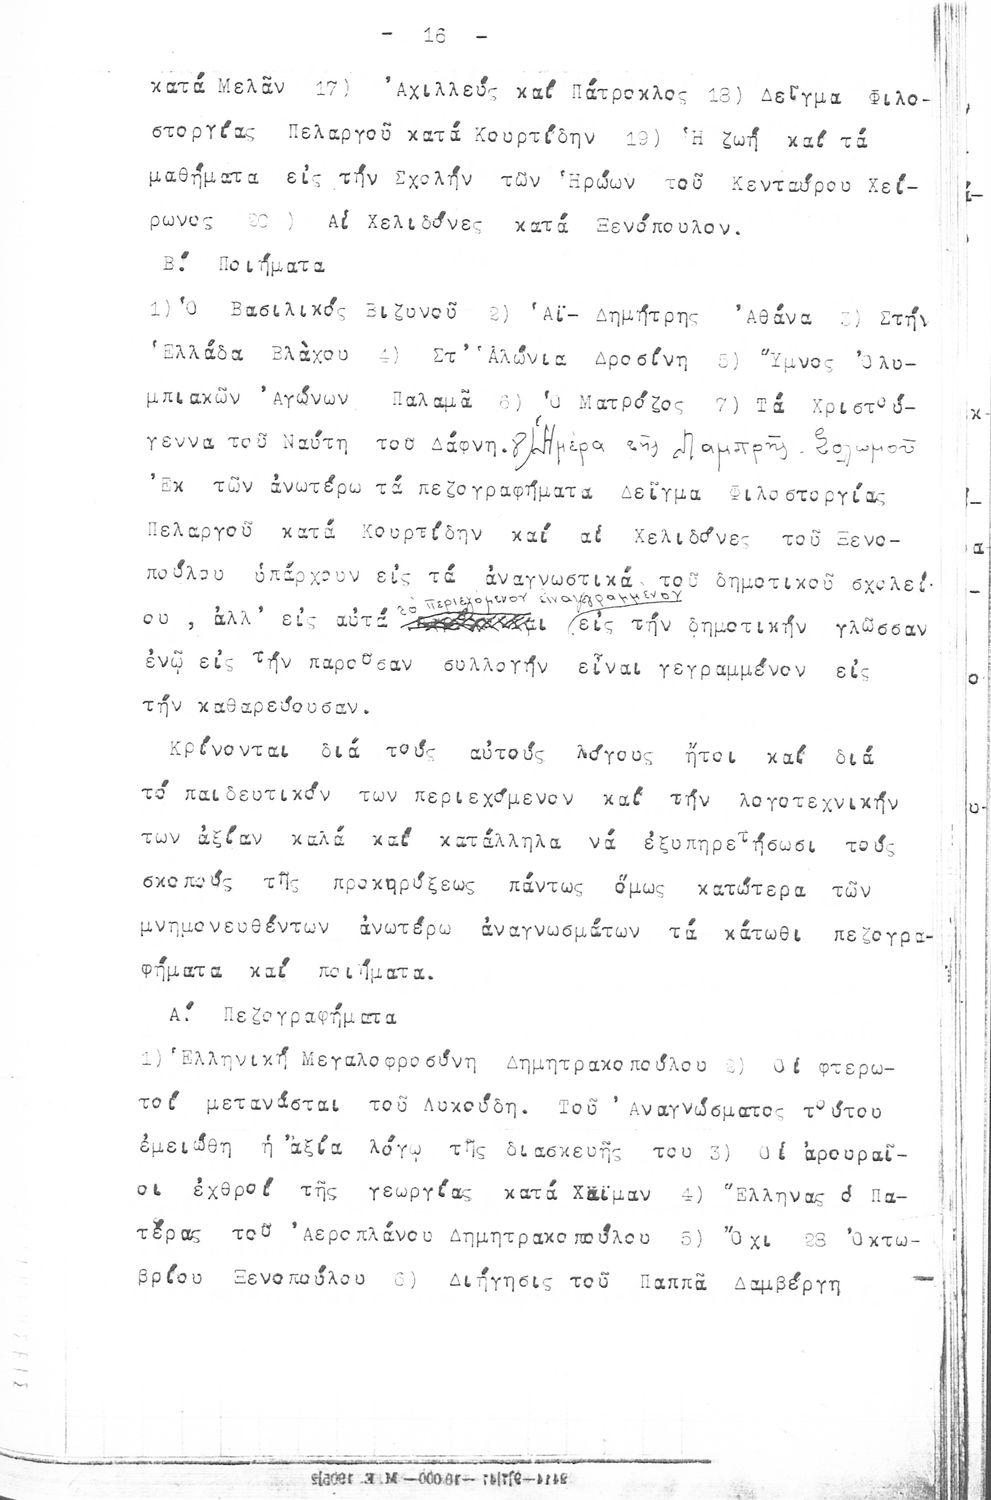 - 16 -
κατά Μελᾶν 17) Ἀχιλλεύς καί Πάτροκλος 18) Δεῖγμα Φιλο-
στοργίας Πελαργοῦ κατά Κουρτίδην 19) Ἡ ζωή καί τά
μαθήματα εἰς τήν Σχολήν τῶν Ἡρώων τοῦ Κενταύρου Χεί-
ρωνος 20 ) Αἱ Χελιδόνες κατά Ξενόπουλον.
Β.΄ Ποιήματα
1) Ὁ Βασιλικός Βιζυηνοῦ 2) Ἁϊ- Δημήτρης Ἀθάνα 3) Στήν
Ἑλλάδα Βλάχου 4) Στ' Ἁλώνια Δροσίνη 5) Ὕμνος Ὀλυ-
μπιακῶν Ἀγώνων Παλαμᾶ 6) Ὁ Ματρόζος 7) Τά Χριστού-
γεννα τοῦ Ναύτη του Δάφνη. 8) Ἡ Ἡμέρα τῆς Λαμπρῆς. Σολωμοῦ
Ἐκ τῶν ἀνωτέρω τά πεζογραφήματα Δεῖγμα Φιλοστοργίας
Πελαργοῦ κατά Κουρτίδην καί αἱ Χελιδόνες τοῦ Ξενο-
πούλου ὑπάρχουν εἰς τά ἀναγνωστικά τοῦ δημοτικοῦ σχολεί-
τό περιεχόμενον εἶναι γραμμένον
ου , ἀλλ' εἰς αὐτά (εἰς τήν δημοτικήν γλῶσσαν
ἐνῷ εἰς τήν παροῦσαν συλλογήν εἶναι γεγραμμένον εἰς
τήν καθαρεύουσαν.
Κρίνονται διά τούς αὐτούς λόγους ἤτοι καί διά
τό παιδευτικόν των περιεχόμενον καί τήν λογοτεχνικήν
των ἀξίαν καλά καί κατάλληλα νά ἐξυπηρετήσωσι τούς
σκοπούς τῆς προκηρύξεως πάντως ὅμως κατώτερα τῶν
μνημονευθέντων ἀνωτέρω ἀναγνωσμάτων τά κάτωθι πεζογρα-
φήματα καί ποιήματα.
Α.΄ Πεζογραφήματα
1) Ἑλληνική Μεγαλοφροσύνη Δημητρακοπούλου 2) Οἱ φτερω-
τοί μετανάσται τοῦ Λυκούδη. Τοῦ Ἀναγνώσματος τούτου
ἐμειώθη ἡ ἀξία λόγῳ τῆς διασκευῆς του 3) Οἱ ἀρουραῖ-
οι ἐχθροί τῆς γεωργίας κατά Χάϊμαν 4) Ἕλληνας ὁ Πα-
τέρας τοῦ Ἀεροπλάνου Δημητρακοπούλου 5) Ὄχι 28 Ὀκτω-
βρίου Ξενοπούλου 6) Διήγησις τοῦ Παππᾶ Δαμβέργη